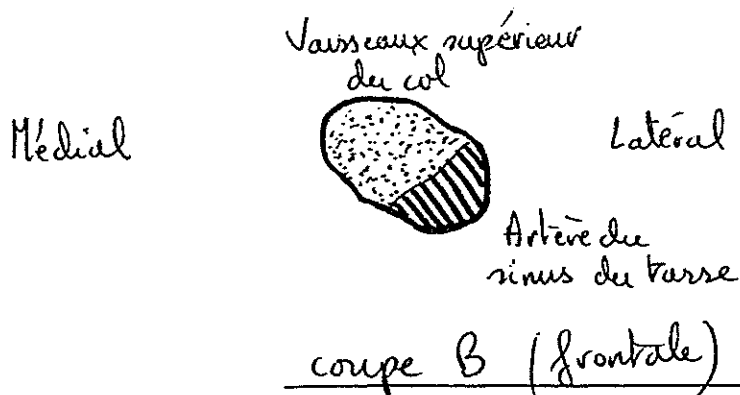 Vaisseaux supérieur
du col
Médial
Latéral
Artère du
sinus du tarse
coupe B (frontale)